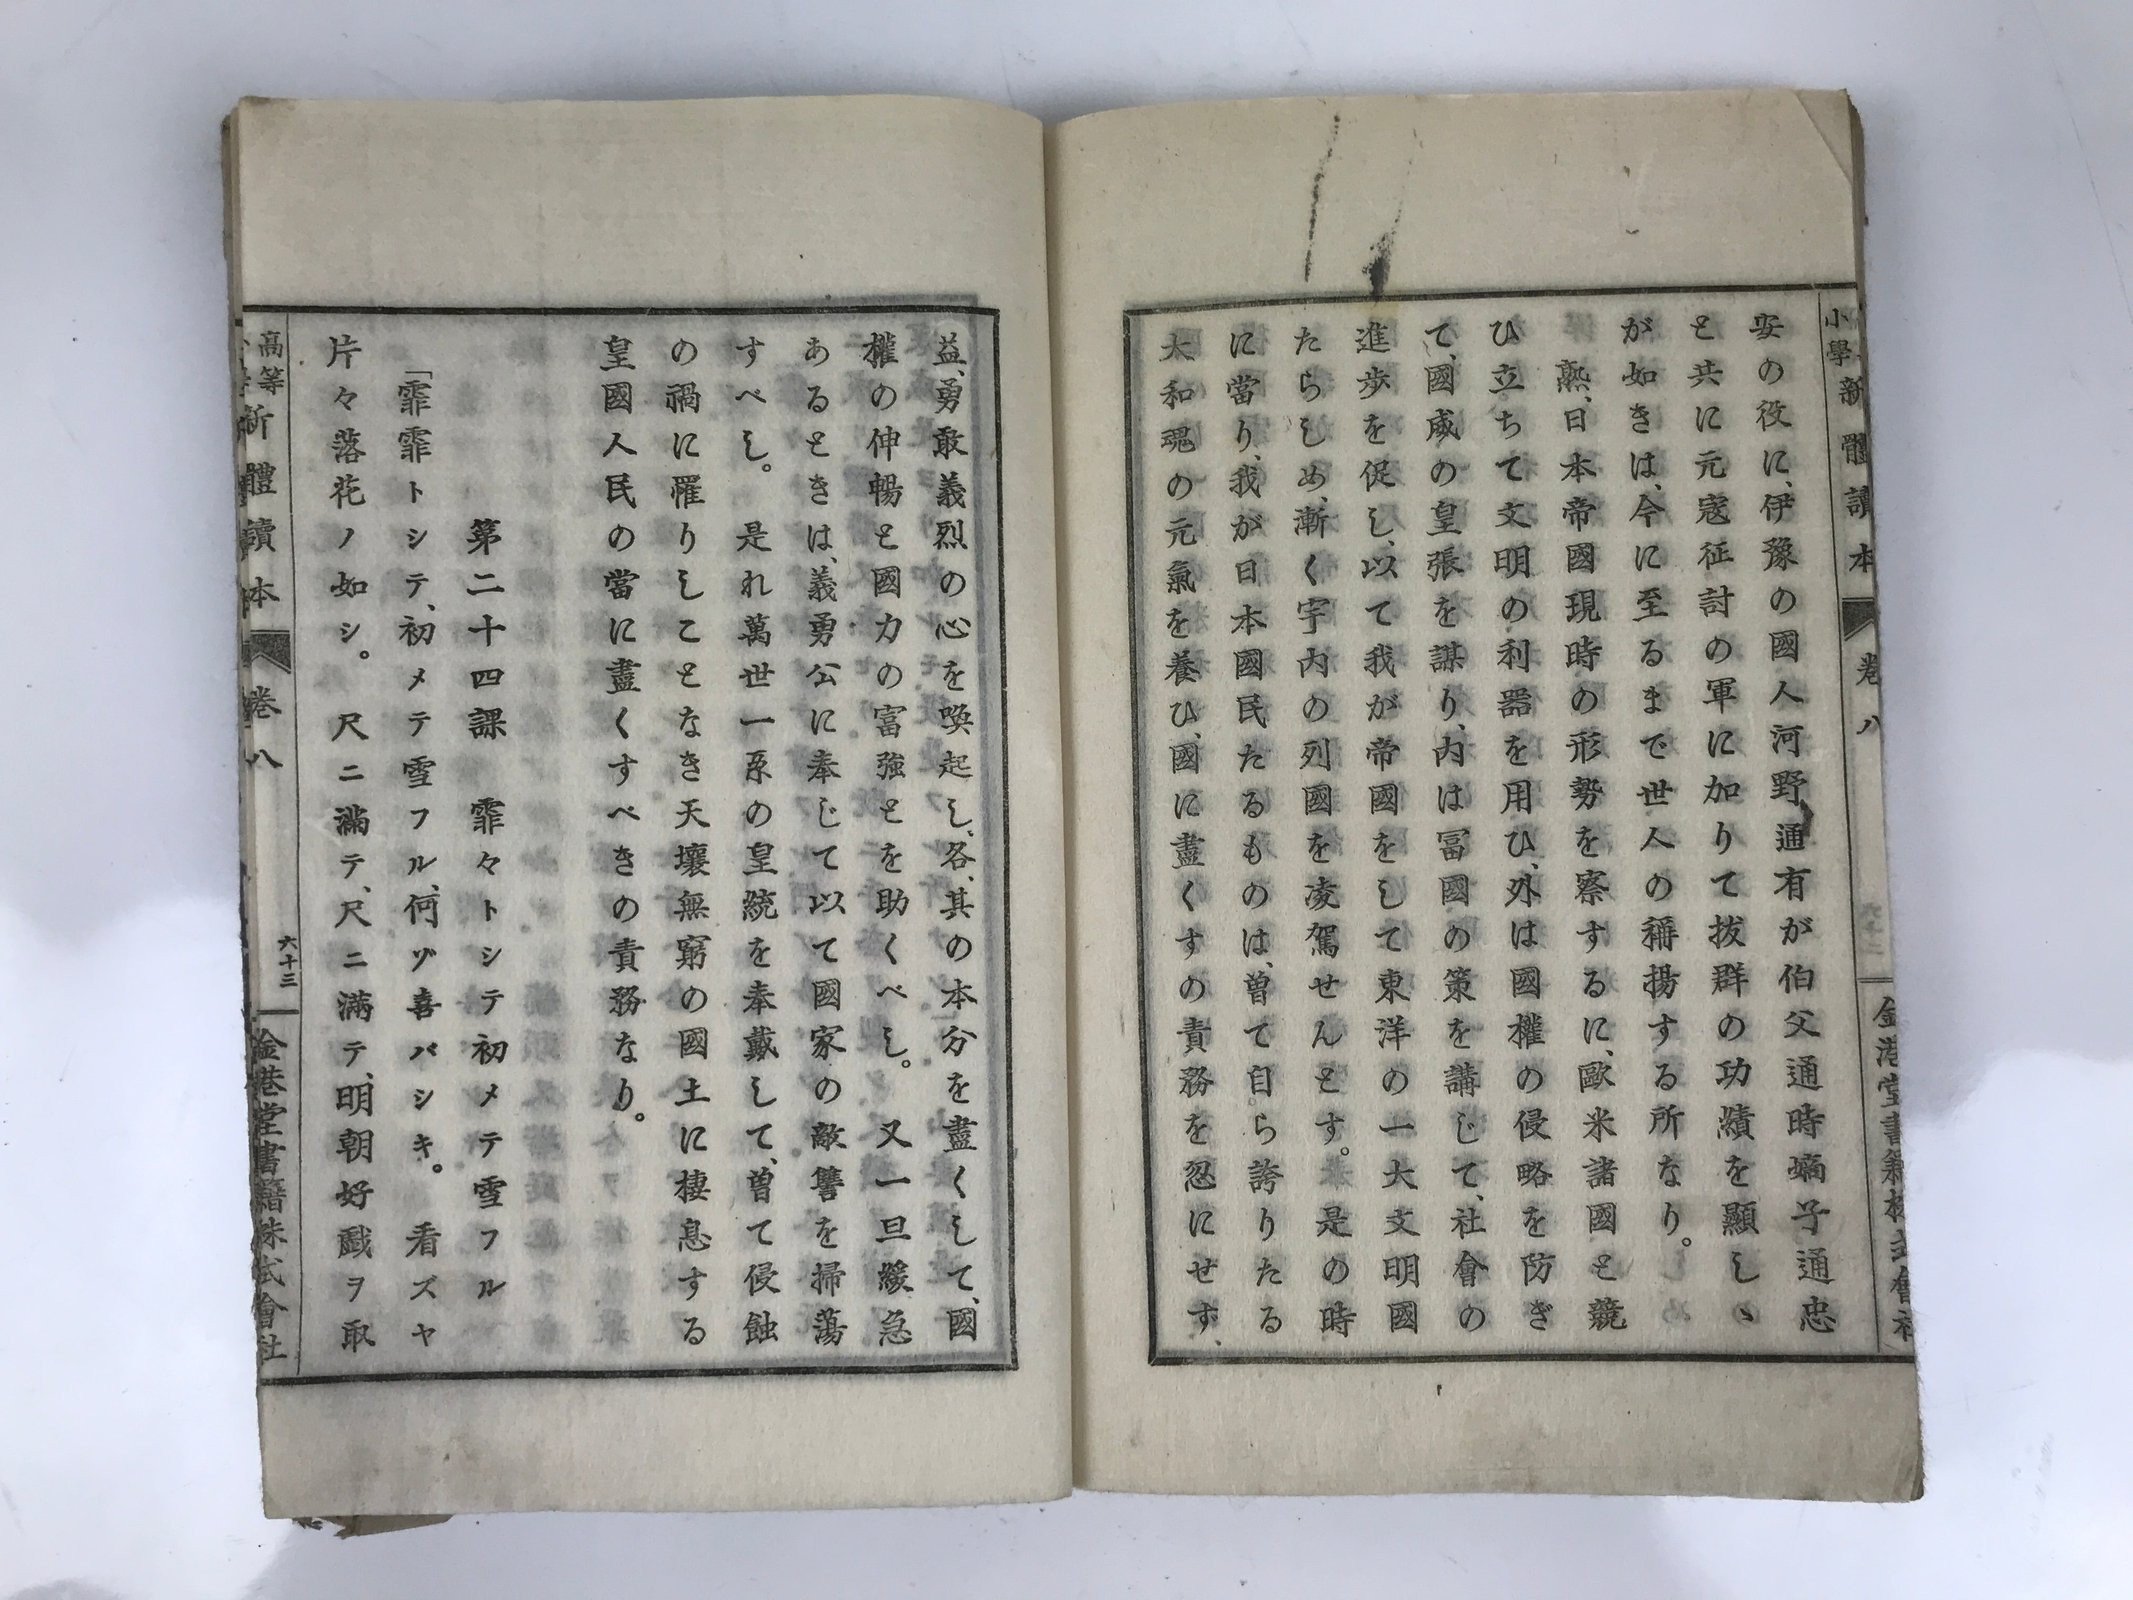 小學新體讀本 卷八
安の役に、伊豫の國人河野通有が伯父通時嫡子通忠
と共に元寇征討の軍に加りて拔群の功績を顯しゝ
が如きは、今に至るまで世人の稱揚する所なり。
熟、日本帝國現時の形勢を察するに、歐米諸國と競
ひ立ちて文明の利器を用ひ、外は國權の侵略を防ぎ
て、國威の皇張を謀り、内は冨國の策を講じて、社會の
進歩を促し、以て我が帝國をして東洋の一大文明國
たらしめ、漸く宇内の列國を凌駕せんとす。是の時
に當り、我が日本國民たるものは、曽て自ら誇りたる
大和魂の元氣を養ひ、國に盡くすの責務を忽にせず、
益、勇敢義烈の心を喚起し、各、其の本分を盡くして、國
權の伸暢と國力の富強とを助くべし。又一旦緩急
あるときは、義勇公に奉じて以て國家の敵讐を掃蕩
すべし。是れ萬世一系の皇統を奉戴して、曽て侵蝕
の禍に罹りしことなき天壤無窮の國土に棲息する
皇國人民の當に盡くすべきの責務なり。
第二十四課 霏々トシテ初メテ雪フル
「霏霏トシテ、初メテ雪フル、何ゾ喜バシキ。看ズヤ
片々落花ノ如シ。尺ニ滿テ、尺ニ滿テ、明朝好戲ヲ取
高等新體讀本 卷八 六十三 金港堂書籍株式會社